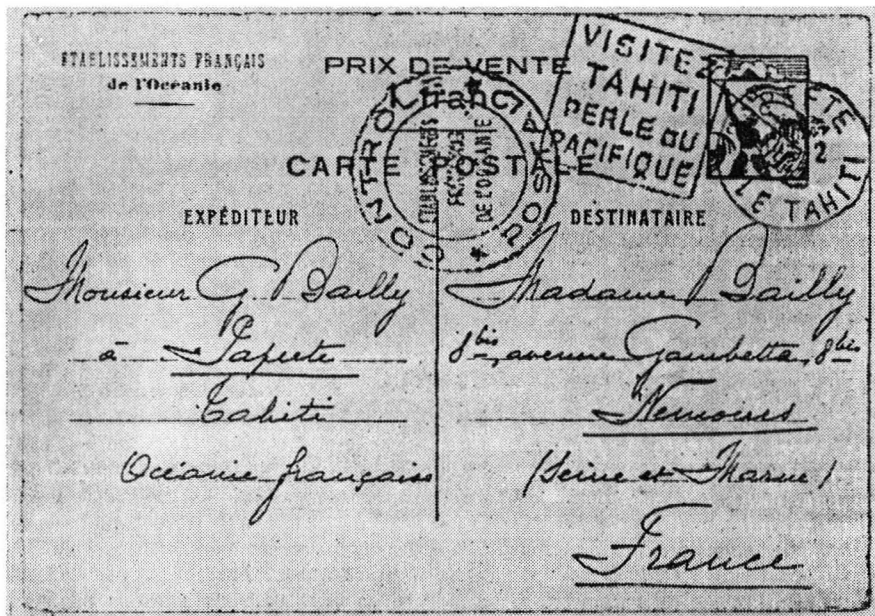 ÉTABLISSEMENTS FRANÇAIS
de l'Océanie
PRIX DE VENTE
1 franc
CARTE POSTALE
CONTRÔLE POSTAL
ÉTABLISSEMENTS
FRANÇAIS
DE L'OCÉANIE
VISITEZ
TAHITI
PERLE DU
PACIFIQUE
ILE TAHITI
EXPÉDITEUR
Monsieur G. Bailly
à Papeete
Tahiti
Océanie française
DESTINATAIRE
Madame Bailly
8 bis, avenue Gambetta, 8 bis
Nemours
(Seine et Marne)
France